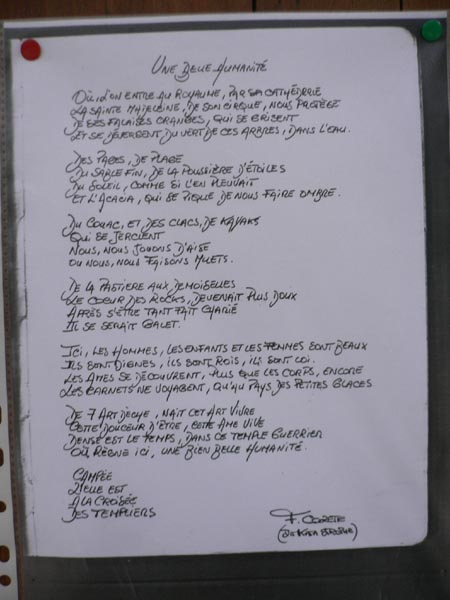 Une Belle Humanité
Où l'on entre au royaume, par sa cathédrale
La Sainte Madeleine, de son cirque, nous protège
De ses falaises oranges, qui se grisent
Et se déversent, du vert de ces arbres, dans l'eau.
Des pages, de plage
Du sable fin, de la poussière d'étoiles
Du soleil, comme si l'en pleuvait
Et l'acacia, qui se pique de nous faire ombre.
Du couac, et des clacs, de kayaks
Qui se
Nous, nous jouons d'aise
Ou nous, nous faisons mulets.
De la aux demoiselles
Le coeur des rocks, devenait plus doux
Après s'être tant fait
Il se serait galet.
Ici, les hommes, les enfants et les femmes sont beaux
Ils sont dignes, ils sont rois, ils sont loi.
Les âmes se découvrent, plus que les corps, encore
Les carnets ne voyagent, qu'au pays des petites glaces
De 7 Ardèche, nait cet art vivre
Cette douceur d'être, cette âme vive
Dense est le temps, dans ce temple guerrier
Où règne ici, une bien belle humanité.
Campée
Qu'elle est
A la croisée
Des Templiers